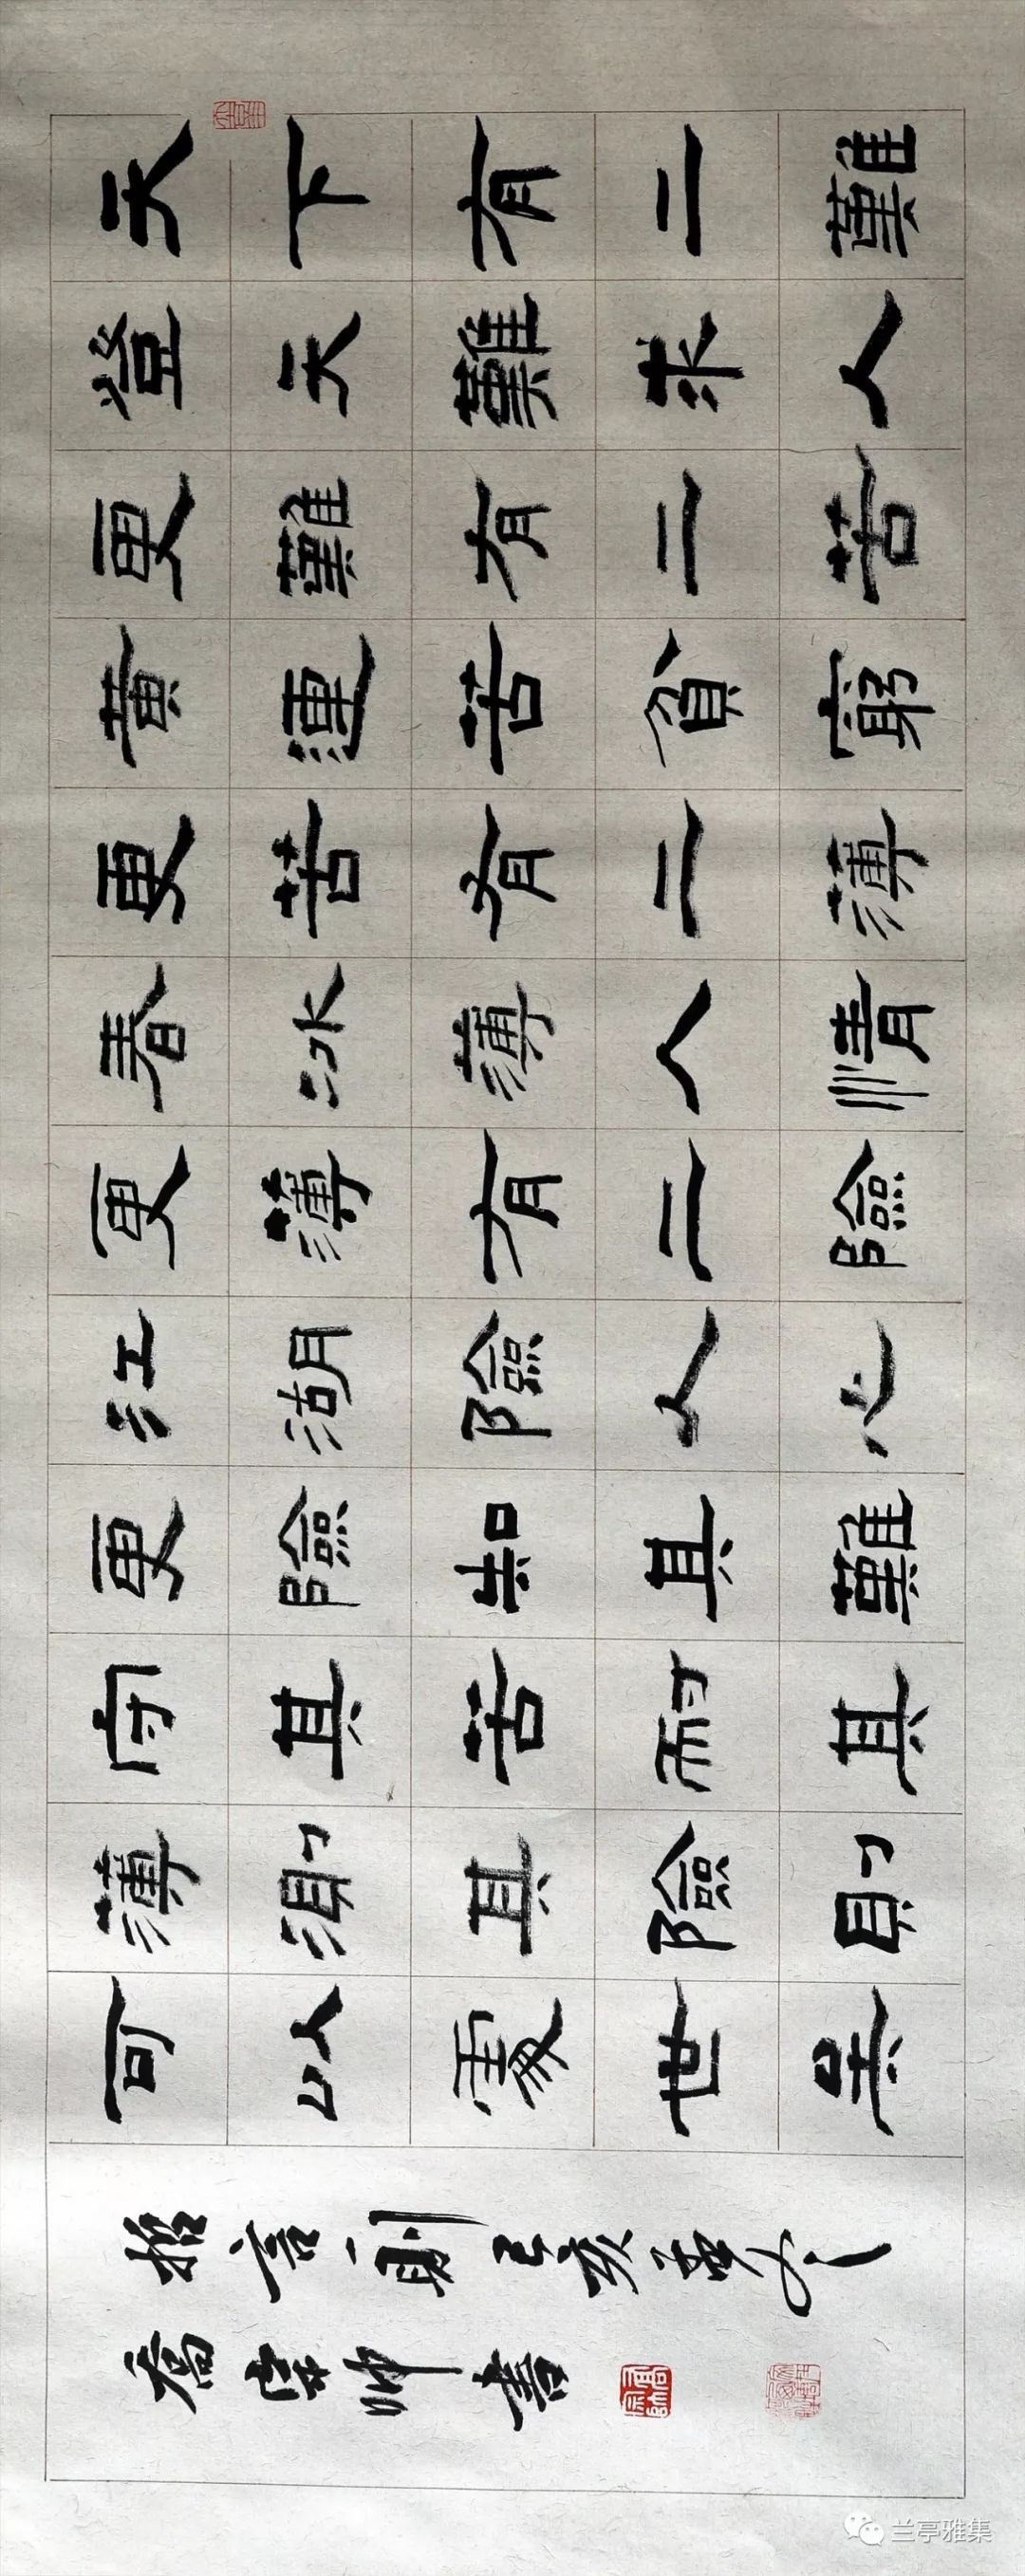 天下有二難
登天難求人
更難有二苦
黃連苦貧窮
更苦有二薄
春冰薄人情
更薄有二險
江湖險人心
更險知其難
守其苦耐其
薄測其險則
可以處世矣
格言一則己亥夏
喬宗帥書
兰亭雅集